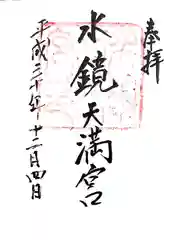 奉拝
水鏡天満宮
平成二十年十二月四日